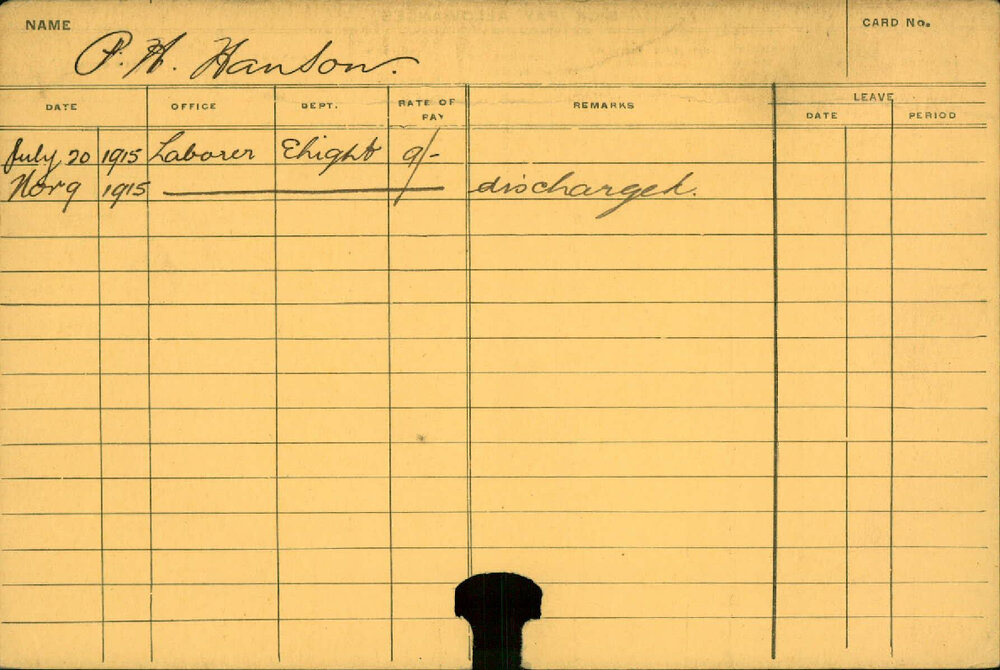 NAME
CARD No.
P. H. Hanson.
DATE OFFICE DEPT. RATE OF PAY REMARKS LEAVE
DATE PERIOD
July 20 1915 Laborer 9/-
Nov 9 1915 discharged.